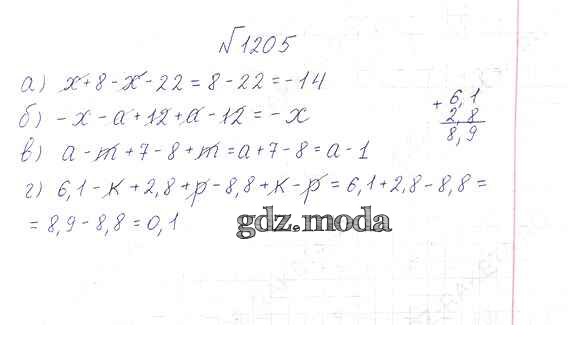 №1205
а) x+8-x-22=8-22=-14
б) -x-a+12+a-12=-x
в) a-m+7-8+m=a+7-8=a-1
г) 6,1-к+2,8+p-8,8+к-p=6,1+2,8-8,8=
=8,9-8,8=0,1
+ 6,1
2,8
8,9
gdz.moda